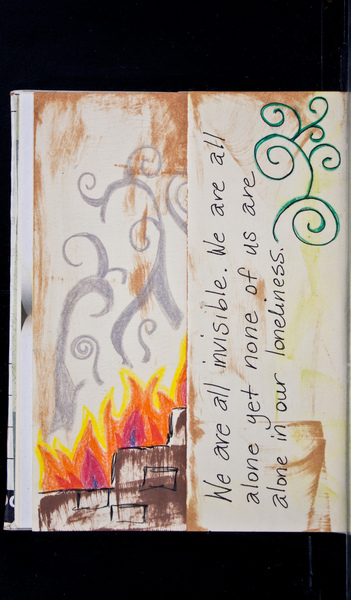 We are all invisible. We are all
alone yet none of us are
alone in our loneliness.